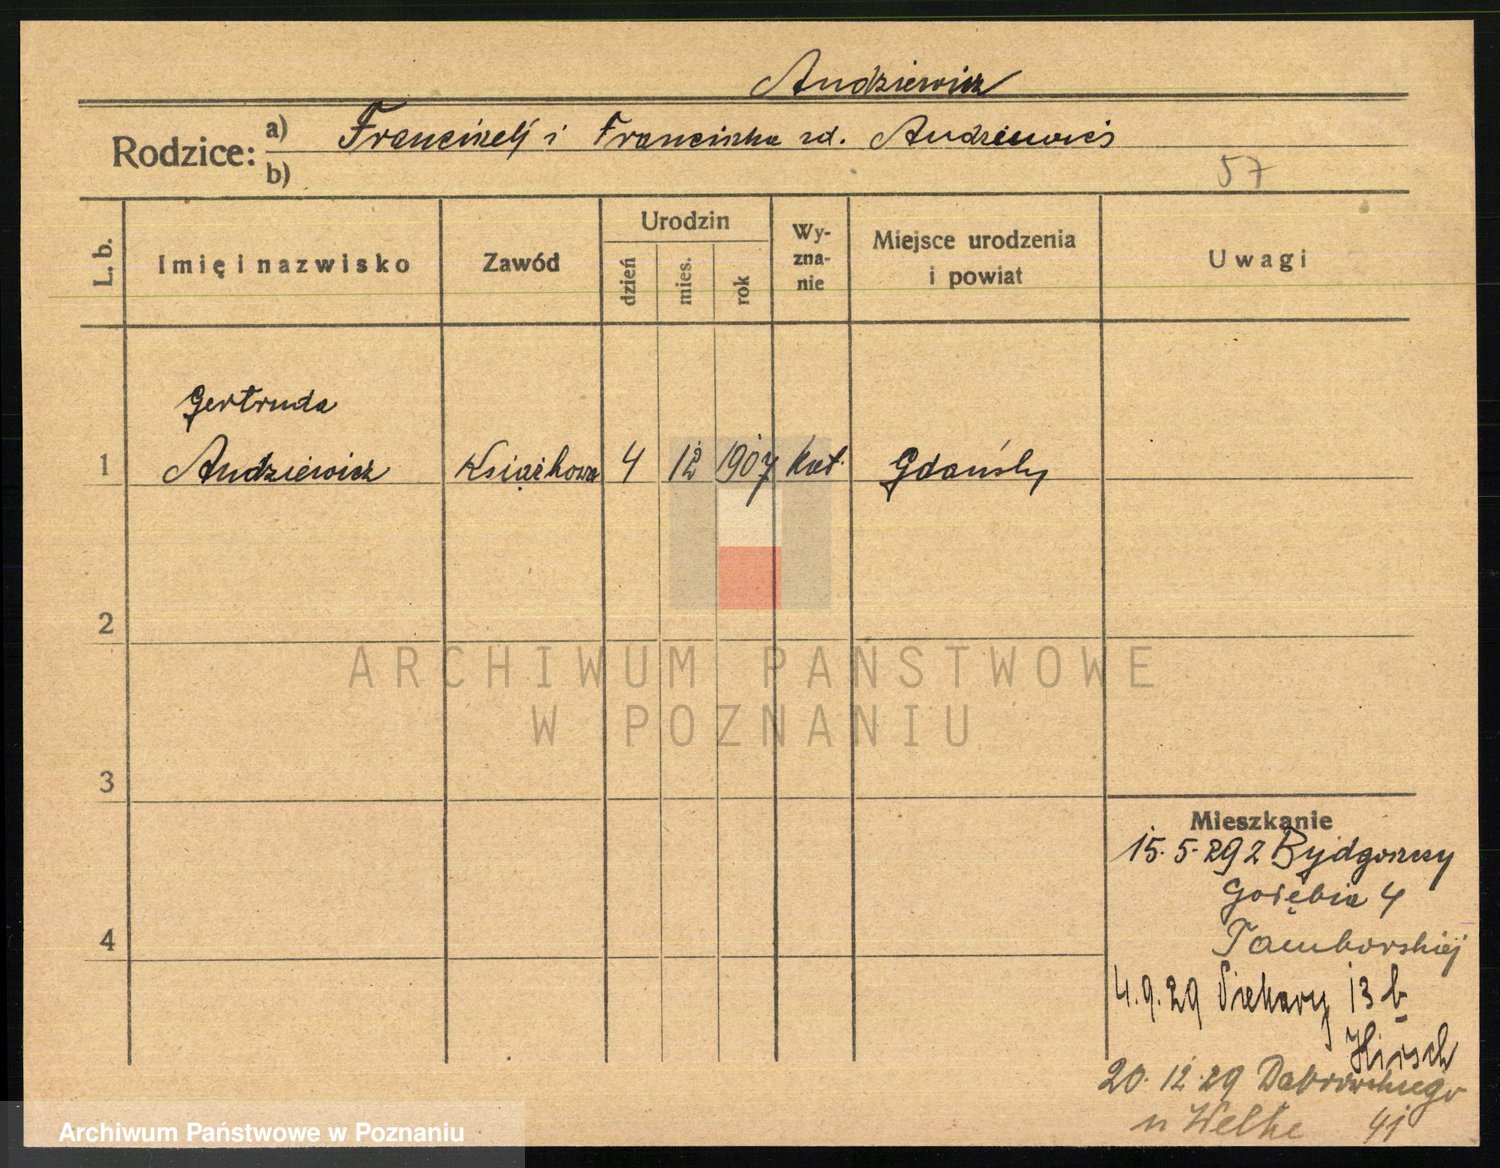 Andziewicz
Rodzice:
a) Franciszek i Franciszka zd. Andziewicz
b)
57
L. b.
Imię i nazwisko
Zawód
Urodzin
dzień
mies.
rok
Wy-
zna-
nie
Miejsce urodzenia
i powiat
Uwagi
Gertruda
1 Andziewicz Książkowa 4 12 1907 kat.
2
3
4
ARCHIWUM PAŃSTWOWE
W POZNANIU
Mieszkanie
15.5.29 z Bydgoszczy
Gołębia 4
4.9.29 Piekary 13 b
Hirsch
20.12.29 Dąbrowskiego
u Welke 41
Archiwum Państwowe w Poznaniu